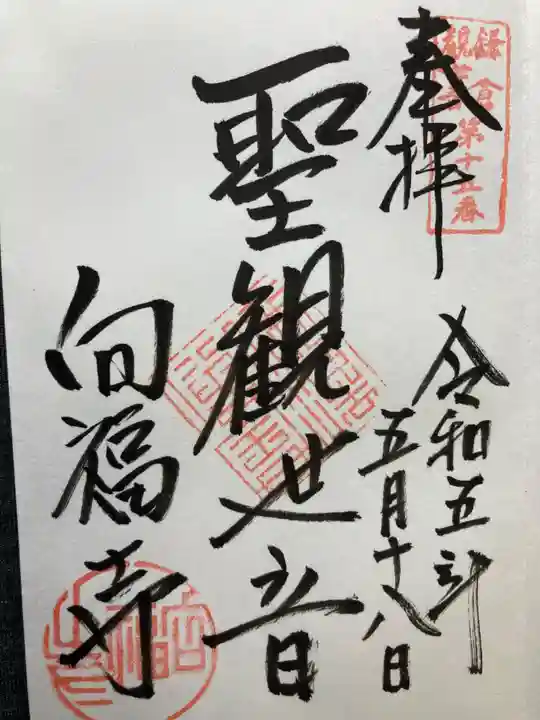 鎌倉
観音第十五番
奉拝
令和五年
五月十八日
聖観世音
向福寺